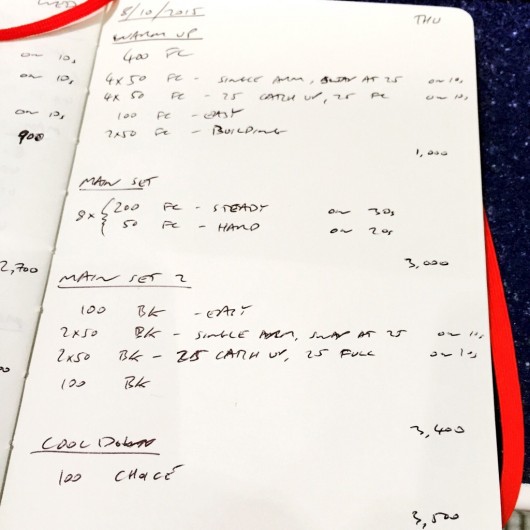 WED
on 10s
on 10s
on 10s
900
2,700
8/10/2015 THU
WARM UP
400 FC
4x50 FC - SINGLE ARM, SWAP AT 25 on 10s
4x 50 FC - 25 CATCH UP, 25 FC on 10s
100 FC - EASY
2x50 FC - BUILDING
1,000
MAIN SET
8x { 200 FC - STEADY on 30s
50 FC - HARD on 20s
3,000
MAIN SET 2
100 BK - EASY
2x50 BK - SINGLE ARM, SWAP AT 25 on 10s
2x50 BK - 25 CATCH UP, 25 FULL on 10s
100 BK
3,400
COOL DOWN
100 CHOICE
3,500